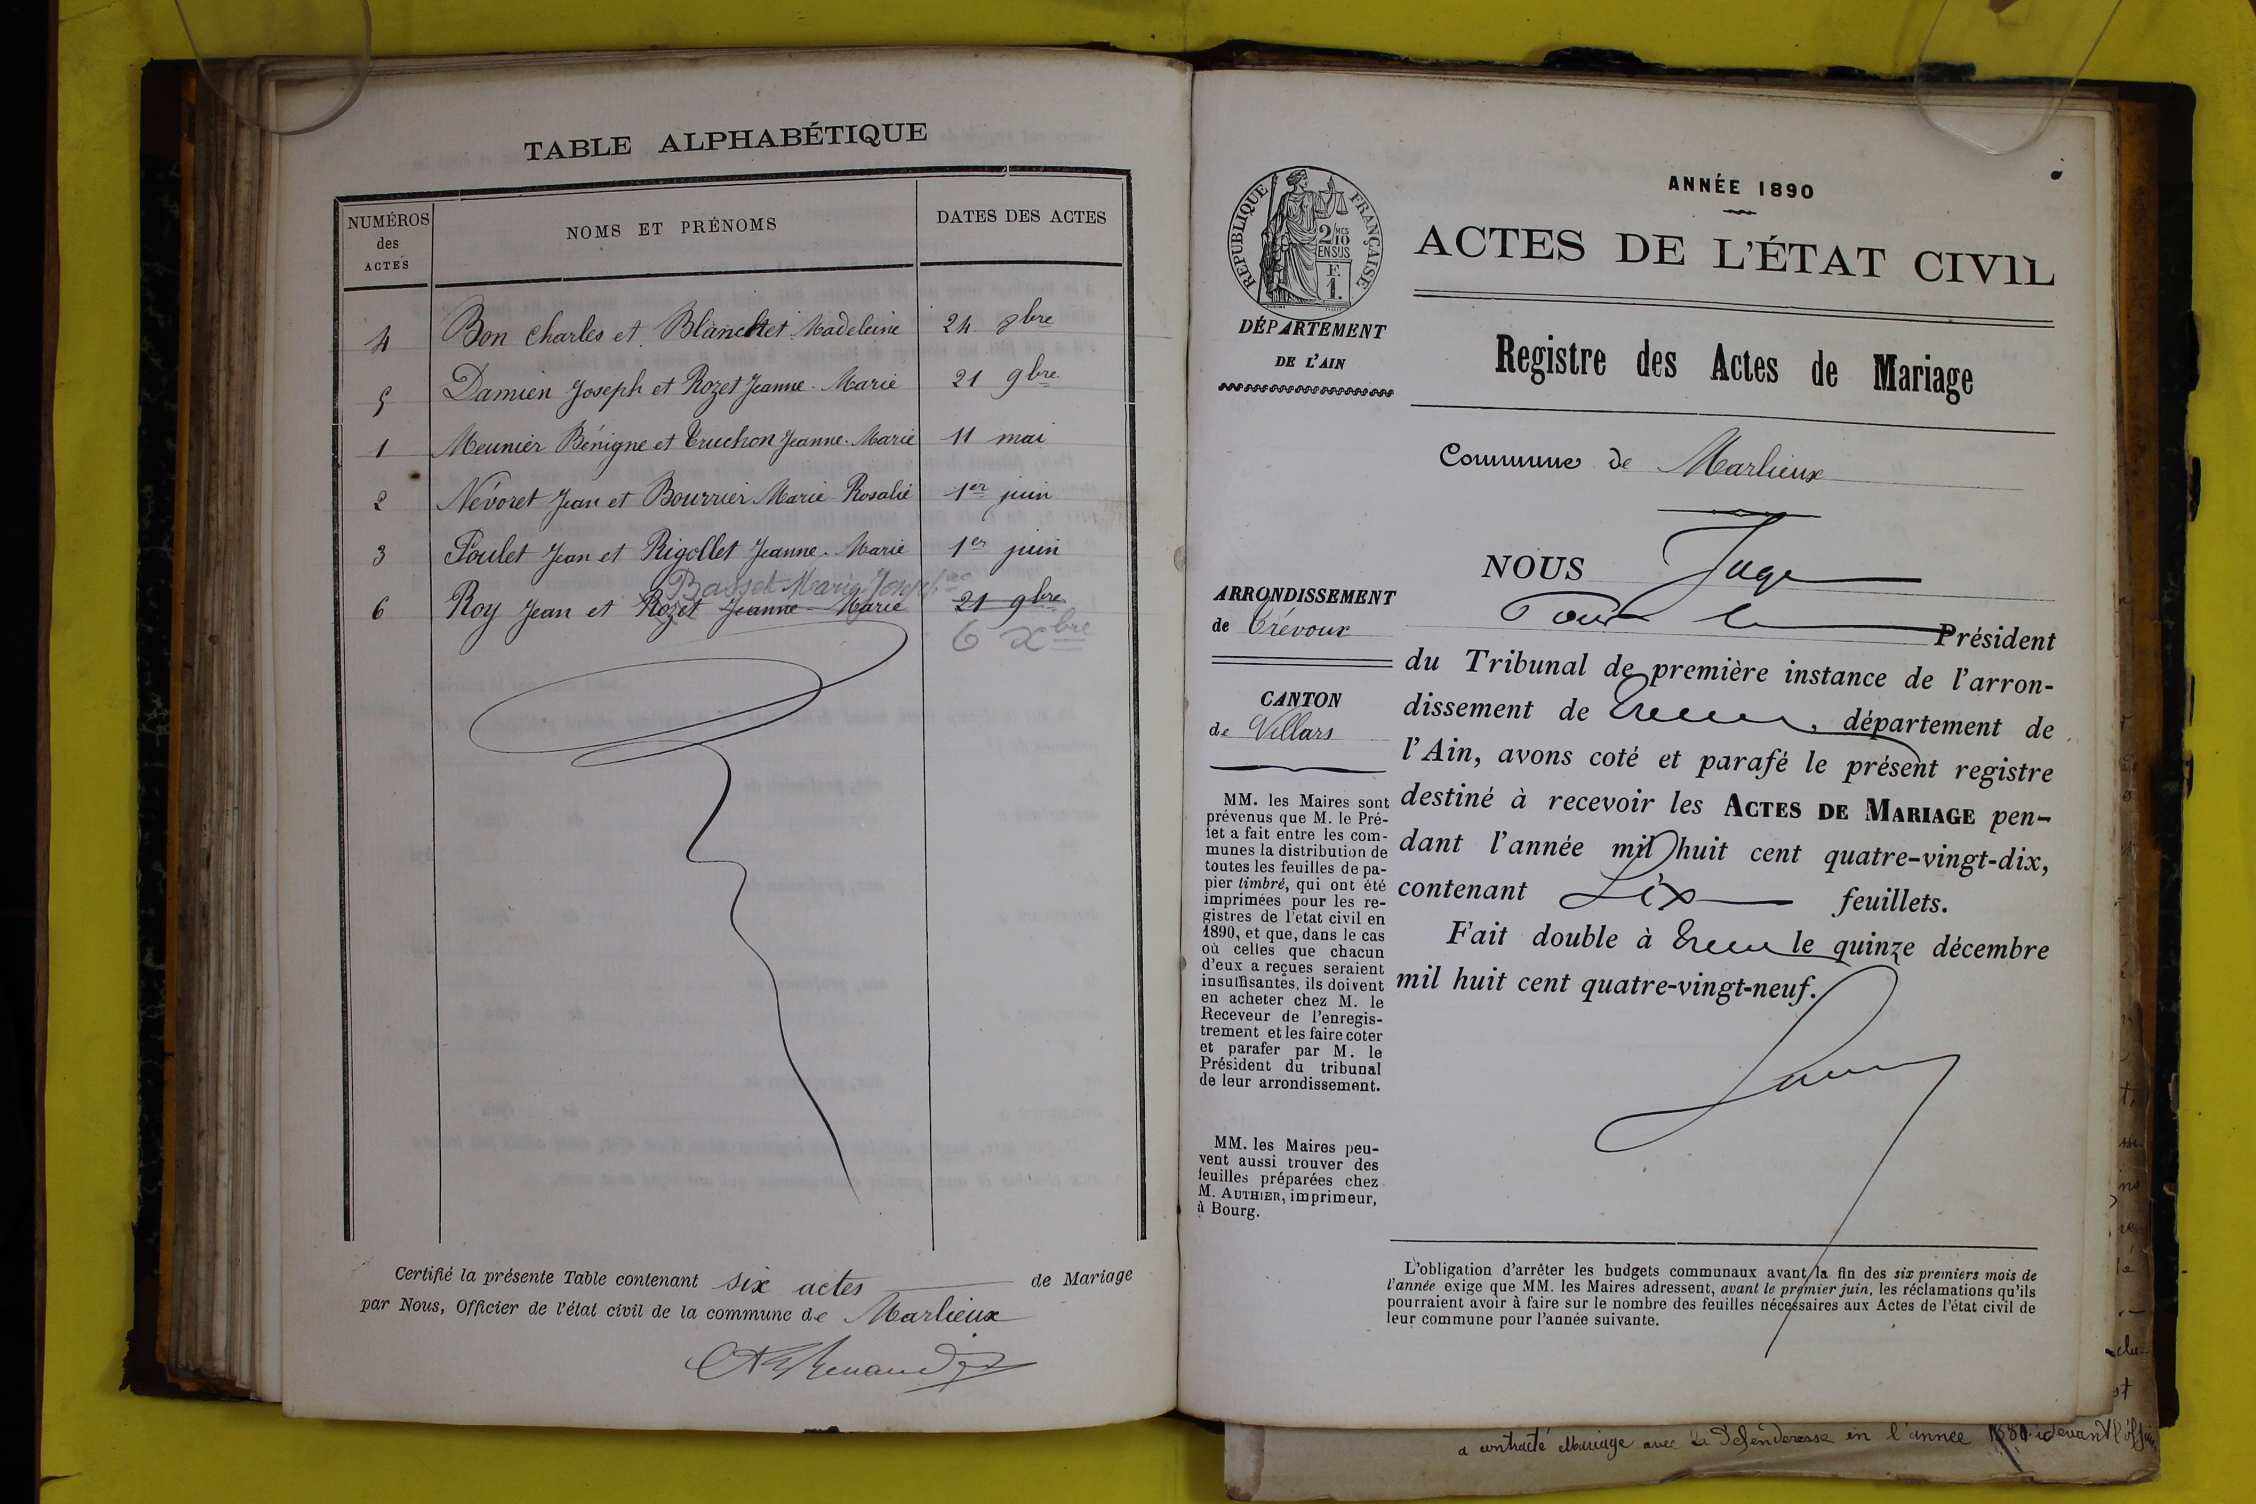 TABLE ALPHABÉTIQUE
NUMÉROS des ACTES
NOMS ET PRÉNOMS
DATES DES ACTES
4 Bon Charles et Blanchet Madeleine 24 8bre
5 Damien Joseph et Rozet Jeanne-Marie 21 9bre
1 Meunier Bénigne et Truchon Jeanne-Marie 11 mai
2 Névoret Jean et Bourrier Marie Rosalie 1er juin
3 Poulet Jean et Rigollet Jeanne-Marie 1er juin
Basset Marie Josephine
6 Roy Jean et Rozet Jeanne-Marie 21 9bre
6 Xbre
Certifié la présente Table contenant six actes de Mariage
par Nous, Officier de l'état civil de la commune de Marlieux
ANNÉE 1890
ACTES DE L'ÉTAT CIVIL
RÉPUBLIQUE FRANÇAISE
2/10 MES
EN SUS
F.
1.
DÉPARTEMENT
DE L'AIN
Registre des Actes de Mariage
Commune de Marlieux
ARRONDISSEMENT
de Trévoux
CANTON
de Villars
MM. les Maires sont
prévenus que M. le Pré-
fet a fait entre les com-
munes la distribution de
toutes les feuilles de pa-
pier timbré, qui ont été
imprimées pour les re-
gistres de l'état civil en
1890, et que, dans le cas
où celles que chacun
d'eux a reçues seraient
insuffisantes, ils doivent
en acheter chez M. le
Receveur de l'enregis-
trement et les faire coter
et parafer par M. le
Président du tribunal
de leur arrondissement.
MM. les Maires peu-
vent aussi trouver des
feuilles préparées chez
M. AUTHIER, imprimeur,
à Bourg.
NOUS Juge
Pour le Président
du Tribunal de première instance de l'arron-
dissement de Trévoux, département de
l'Ain, avons coté et parafé le présent registre
destiné à recevoir les ACTES DE MARIAGE pen-
dant l'année mil huit cent quatre-vingt-dix,
contenant Six feuillets.
Fait double à Trévoux le quinze décembre
mil huit cent quatre-vingt-neuf.
L'obligation d'arrêter les budgets communaux avant la fin des six premiers mois de
l'année exige que MM. les Maires adressent, avant le premier juin, les réclamations qu'ils
pourraient avoir à faire sur le nombre des feuilles nécessaires aux Actes de l'état civil de
leur commune pour l'année suivante.
a contracté Mariage avec la Défenderesse en l'année